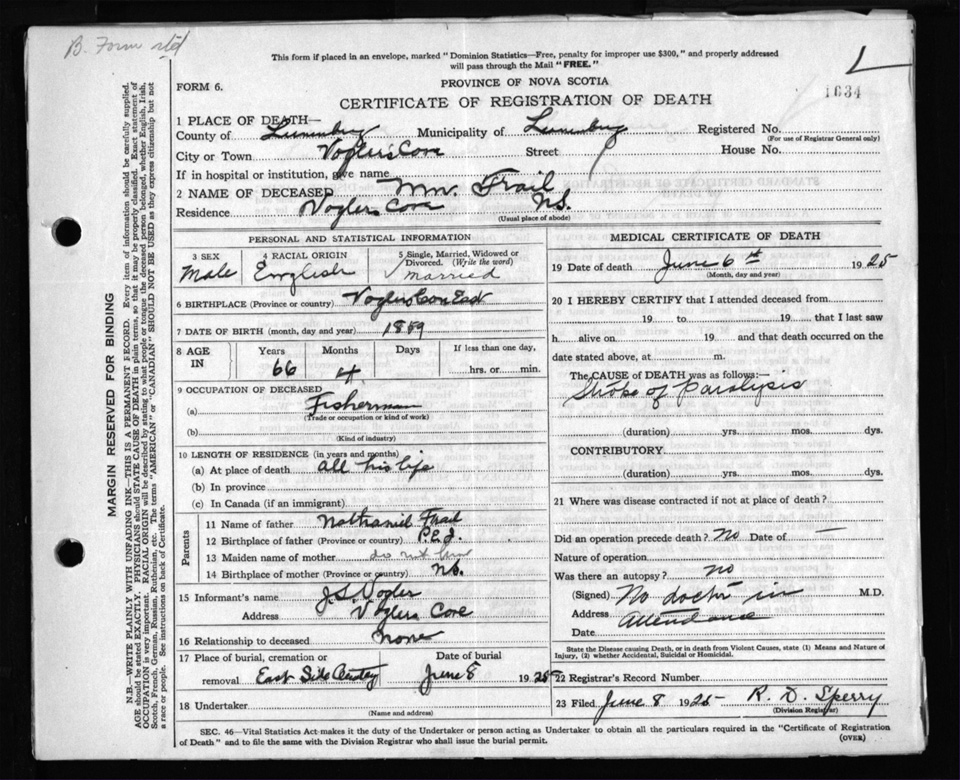 B. Form std
This form if placed in an envelope, marked "Dominion Statistics—Free, penalty for improper use $300," and properly addressed
will pass through the Mail "FREE."
L
PROVINCE OF NOVA SCOTIA
FORM 6.
1634
CERTIFICATE OF REGISTRATION OF DEATH
1 PLACE OF DEATH—
County of Lunenburg Municipality of Lunenburg Registered No.
(For use of Registrar General only)
City or Town Voglers Cove Street House No.
If in hospital or institution, give name
2 NAME OF DECEASED Wm. Frail
Residence Voglers Cove N.S.
(Usual place of abode)
PERSONAL AND STATISTICAL INFORMATION
3 SEX 4 RACIAL ORIGIN 5 Single, Married, Widowed or
Divorced. (Write the word)
Male English Married
6 BIRTHPLACE (Province or country) Voglers Cove East
7 DATE OF BIRTH (month, day and year) 1859
8 AGE IN Years Months Days If less than one day,
66 4 hrs. or min.
9 OCCUPATION OF DECEASED
(a) Fisherman
(Trade or occupation or kind of work)
(b)
(Kind of industry)
10 LENGTH OF RESIDENCE (in years and months)
(a) At place of death all his life
(b) In province
(c) In Canada (if an immigrant)
Parents
11 Name of father Nathaniel Frail
12 Birthplace of father (Province or country) P.E.I.
13 Maiden name of mother do not know
14 Birthplace of mother (Province or country) N.S.
15 Informant's name J.S. Vogler
Address Voglers Cove
16 Relationship to deceased none
17 Place of burial, cremation or Date of burial
removal East Side June 8 1925
18 Undertaker
(Name and address)
MEDICAL CERTIFICATE OF DEATH
19 Date of death June 6th 1925
(Month, day and year)
20 I HEREBY CERTIFY that I attended deceased from
19 to 19 that I last saw
h alive on 19 and that death occurred on the
date stated above, at m.
The CAUSE of DEATH was as follows:—
Stroke of paralysis
(duration) yrs. mos. dys.
CONTRIBUTORY.
(duration) yrs. mos. dys.
21 Where was disease contracted if not at place of death?
Did an operation precede death? No Date of —
Nature of operation
Was there an autopsy? no
(Signed) No doctor in M.D.
Address Attendance
Date
State the Disease causing Death, or in death from Violent Causes, state (1) Means and Nature of
Injury, (2) whether Accidental, Suicidal or Homicidal.
22 Registrar's Record Number
23 Filed June 8 1925 R. D. Sperry
(Division Registrar)
SEC. 46—Vital Statistics Act makes it the duty of the Undertaker or person acting as Undertaker to obtain all the particulars required in the "Certificate of Registration
of Death" and to file the same with the Division Registrar who shall issue the burial permit. (OVER)
MARGIN RESERVED FOR BINDING
N.B.—WRITE PLAINLY WITH UNFADING INK—THIS IS A PERMANENT RECORD. Every item of information should be carefully supplied.
AGE should be stated EXACTLY. PHYSICIANS should STATE CAUSE OF DEATH in plain terms, so that it may be properly classified. Exact statement of
OCCUPATION is very important. RACIAL ORIGIN will be described by stating to what people or tongue the deceased person belonged, whether English, Irish,
Scotch, French, German, Russian, Ruthenian, etc. The terms "AMERICAN" or "CANADIAN" SHOULD NOT BE USED as they express citizenship but not
a race or people. See instructions on back of Certificate.